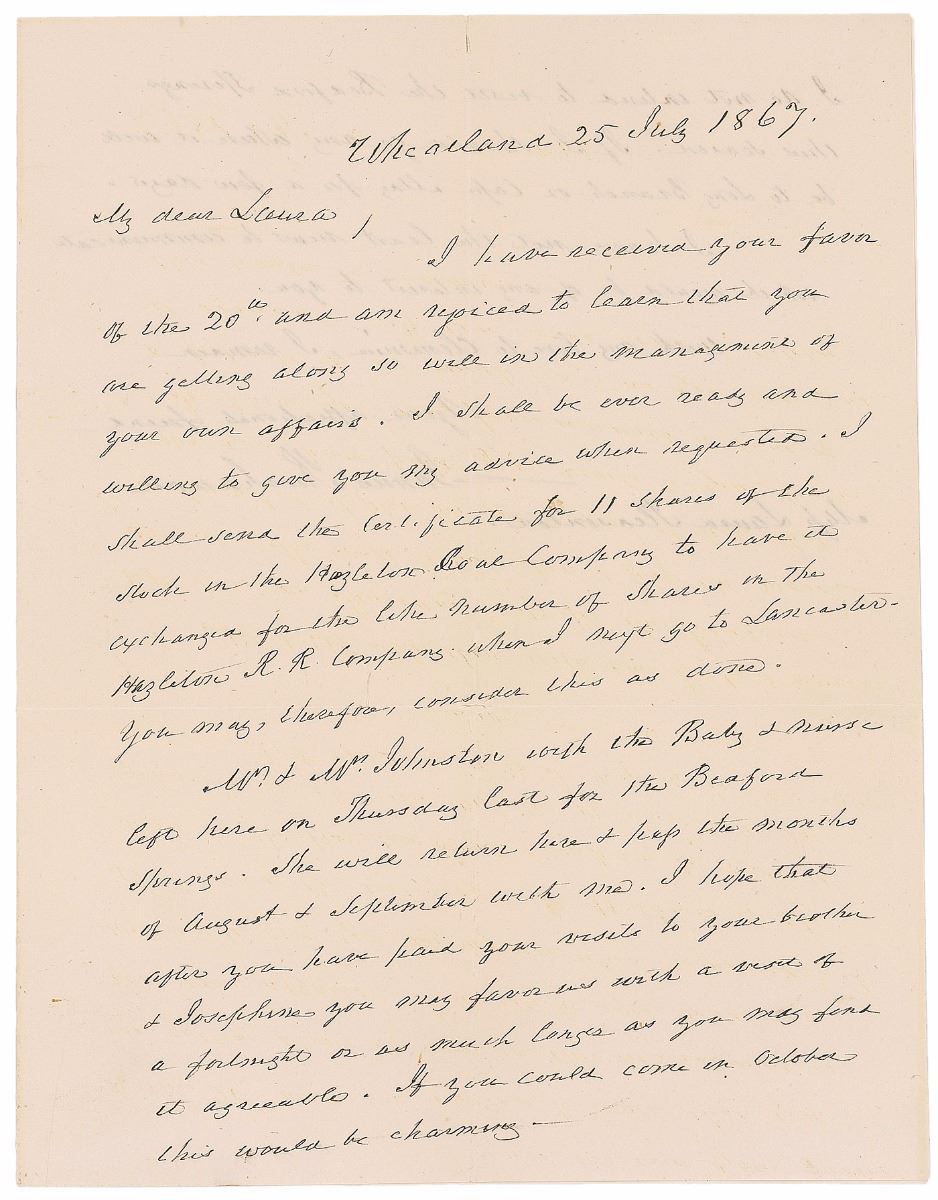 Wheatland 25 July 1867.
My dear Laura,
I have received your favor
of the 20th. and am rejoiced to learn that you
are getting along so well in the management of
your own affairs. I shall be ever ready and
willing to give you my advice when requested. I
shall send the Certificate for 11 shares of the
stock in the Hazleton Coal Company to have it
exchanged for the like number of shares in the
Hazleton R. R. Company when I next go to Lancaster.
You may, therefore, consider this as done.
Mr. & Mrs. Johnston with the Baby & nurse
left here on Thursday last for the Bedford
Springs. She will return here & pass the months
of August & September with me. I hope that
after you have paid your visits to your brother
& Josephine you may favor us with a visit of
a fortnight or as much longer as you may find
it agreeable. If you could come in October
this would be charming.—